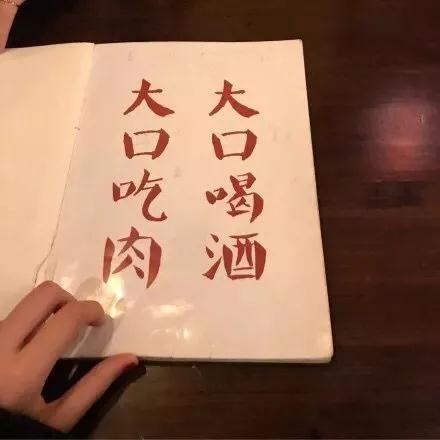 大口喝酒
大口吃肉